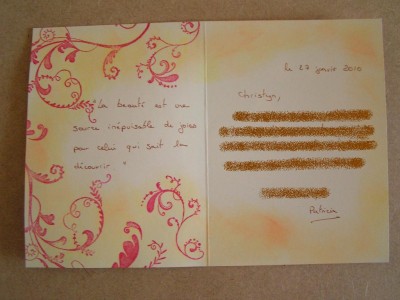 "La beauté est une
source inépuisable de joies
pour celui qui sait la
découvrir"
le 27 janvier 2010
Christyn,
Patricia